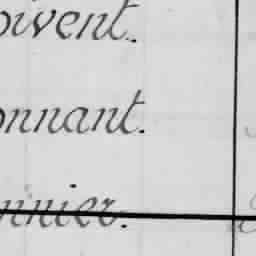 oivent.
onnant.
nnier.